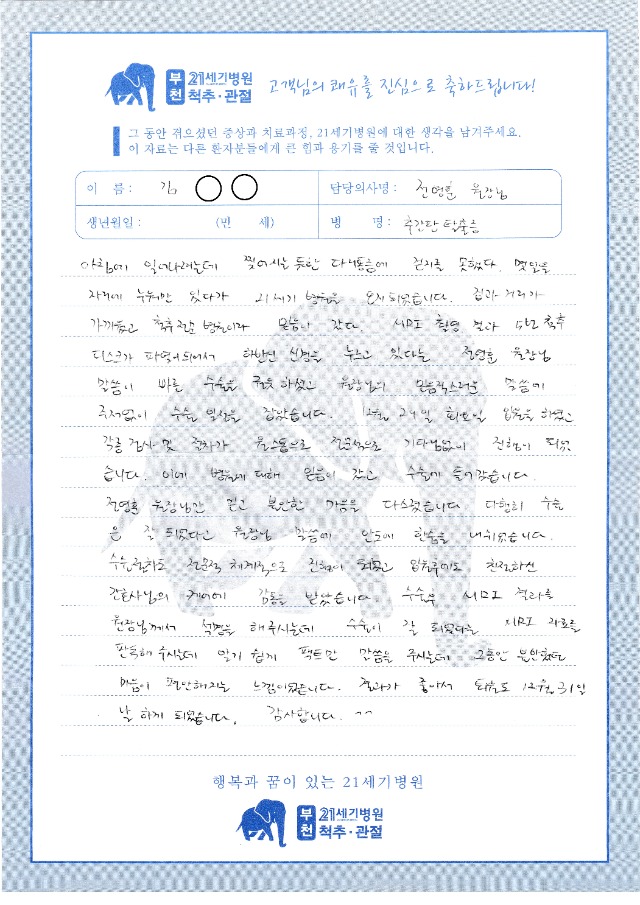 부천 21세기병원 척추·관절
고객님의 쾌유를 진심으로 축하드립니다!
그 동안 겪으셨던 증상과 치료과정, 21세기병원에 대한 생각을 남겨주세요.
이 자료는 다른 환자분들에게 큰 힘과 용기를 줄 것입니다.
이 름 : 김 담당의사명 : 전영훈 원장님
생년월일 : (만 세) 병 명 : 추간판 탈출증
아침에 일어나려는데 찢어지는 듯한 다리통증에 걷지를 못했다. 몇일을
자리에 누워만 있다가 21세기 병원을 오게 되었습니다. 집과 거리가
가까웠고 척추전문 병원이라 믿음이 갔다. MRI 촬영 결과 척추
디스크가 파열이되어서 하반신 신경을 누르고 있다는 전영훈 원장님
말씀이 빠른 수술을 권유하셨고 원장님의 믿음직스러운 말씀에
주저없이 수술 일정을 잡았습니다. 12월 24일 화요일 입원을 하였고
각종 검사 및 절차가 원스톱으로 전문적으로 기다림없이 진행이 되었
습니다. 이에 병원에 대해 믿음이 갔고 수술에 들어갔습니다.
전영훈 원장님만 믿고 불안한 마음을 다스렸습니다 다행히 수술
은 잘 되었다고 원장님 말씀에 안도에 한숨을 내쉬었습니다.
수술절차도 전문적 체계적으로 진행이 되었고 입원후에도 친절하신
간호사님의 케어에 감동을 받았습니다. 수술후 MRI 결과를
원장님께서 설명을 해주시는데 수술이 잘 되었다는 MRI 자료를
판독해 주시는데 알기 쉽게 팩트만 말씀을 주시는데 그동안 불안했던
마음이 편안해지는 느낌이었습니다. 결과가 좋아서 퇴원도 12월 31일
날 하게 되었습니다. 감사합니다. ^^
행복과 꿈이 있는 21세기병원
부천 21세기병원 척추·관절